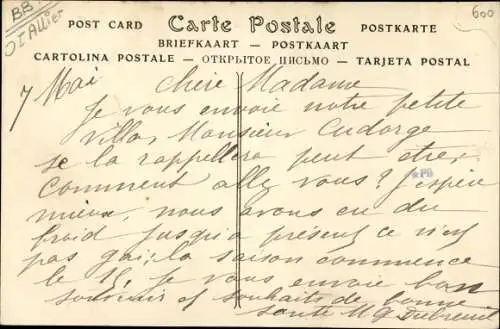 BB
03 Allier
600
POST CARD Carte Postale POSTKARTE
BRIEFKAART — POSTKAART
CARTOLINA POSTALE — ОТКРЫТОЕ ПИСЬМО — TARJETA POSTAL
7 Mai chère Madame
Je vous envoie notre petite
villa, Monsieur
se la rappellera peut être,
comment allez vous? J'espère
mieux, nous avons eu du
froid jusqu'à présent ce n'est
pas gai, la saison commence
le 15, je vous envoie bon
souvenir et souhaits de bonne
santé M G Dubreuil